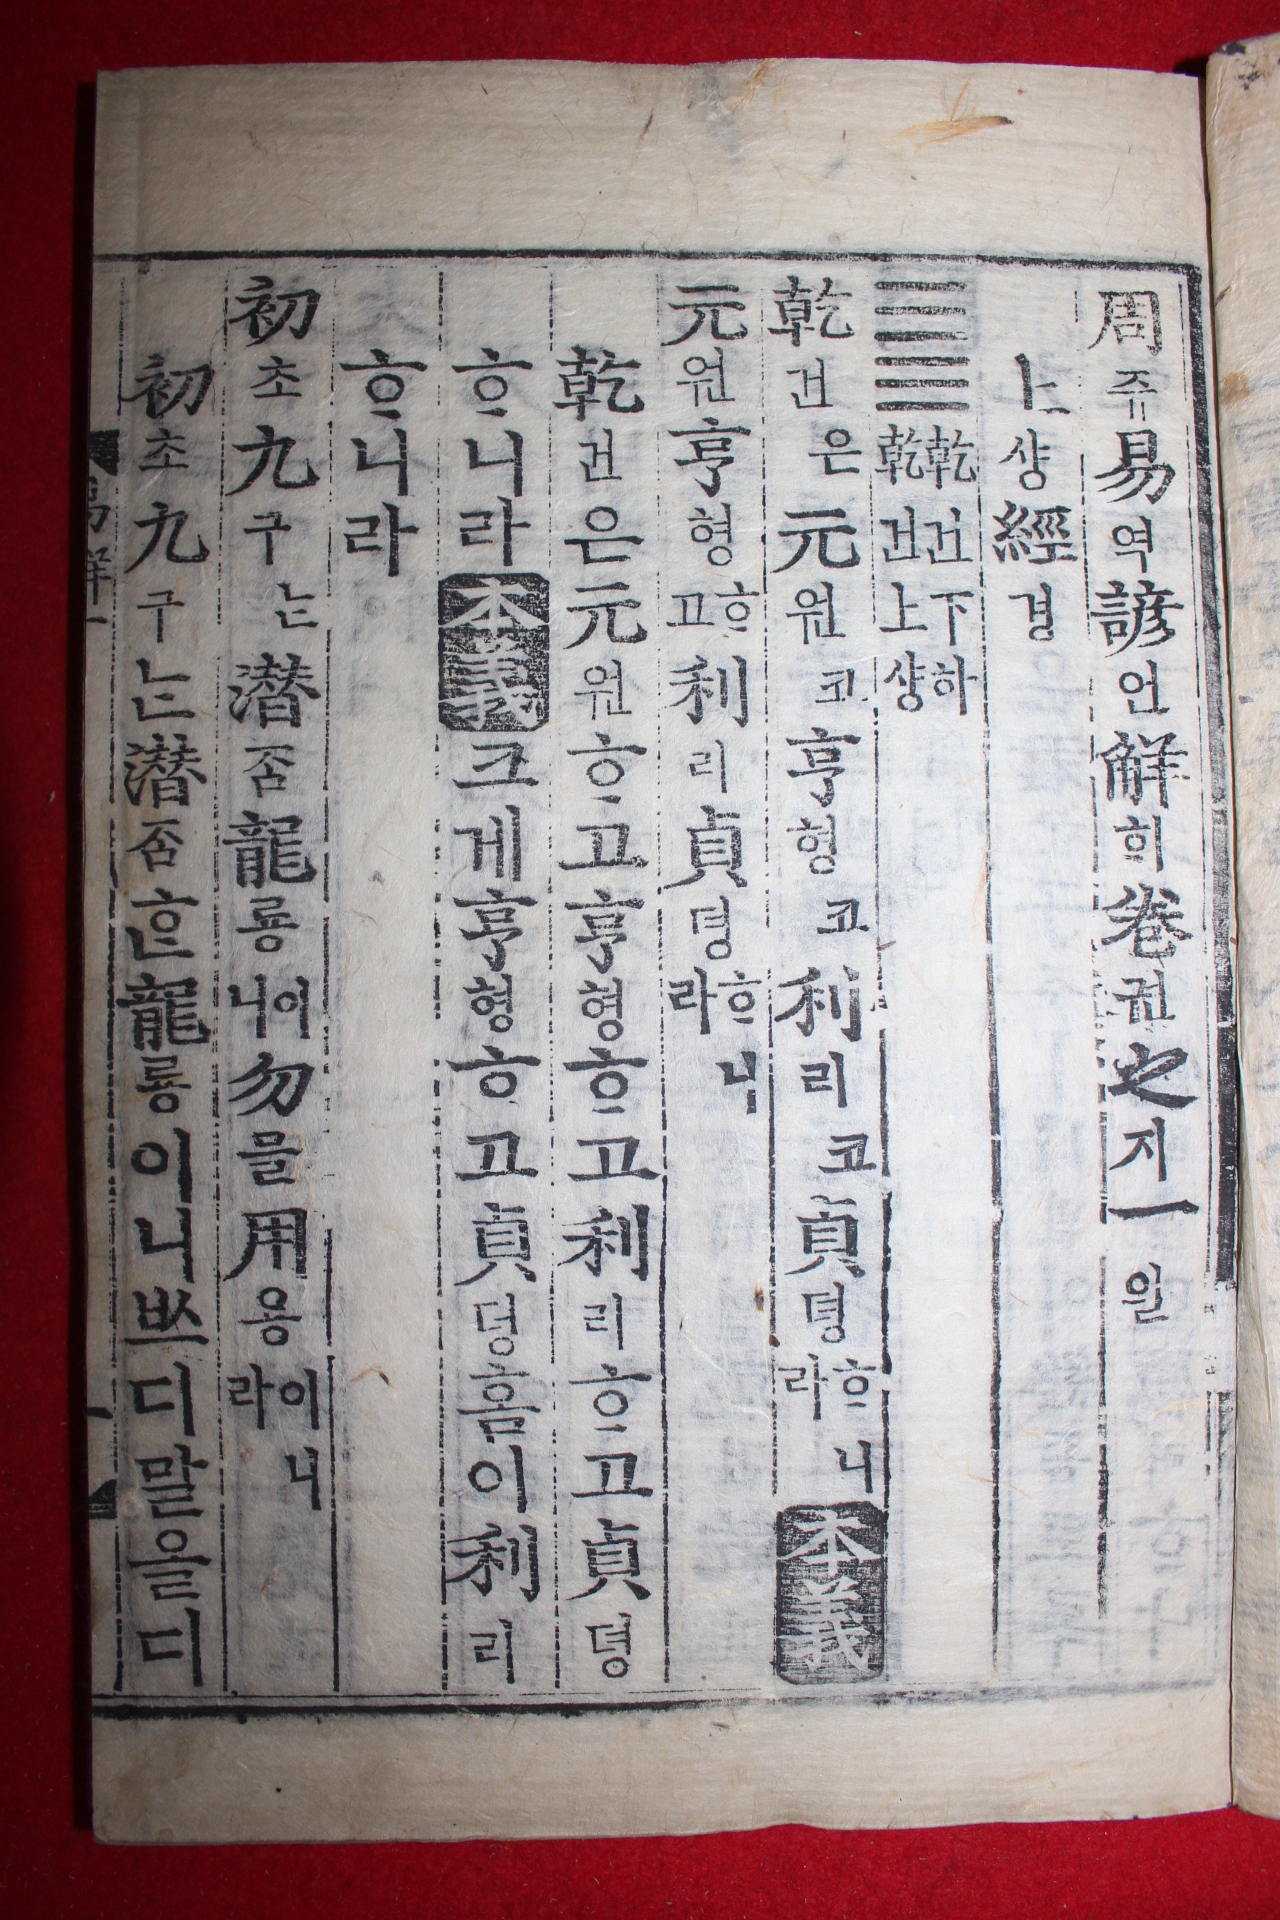 周쥬易역諺언解ᄒᆡ卷권之지一일
上샹經경
䷀乾건下하乾건上샹
乾건은元원코亨형코利리코貞뎡ᄒᆞ니라本義
元원亨형ᄒᆞ고利리貞뎡ᄒᆞ니라
乾건은元원ᄒᆞ고亨형ᄒᆞ고利리ᄒᆞ고貞뎡
ᄒᆞ니라本義크게亨형ᄒᆞ고貞뎡홈이利리
ᄒᆞ니라
初초九구ᄂᆞᆫ潛ᄌᆞᆷ龍룡이니勿믈用용이니라
初초九구ᄂᆞᆫ潛ᄌᆞᆷᄒᆞᆫ龍룡이니ᄡᅳ디말올디